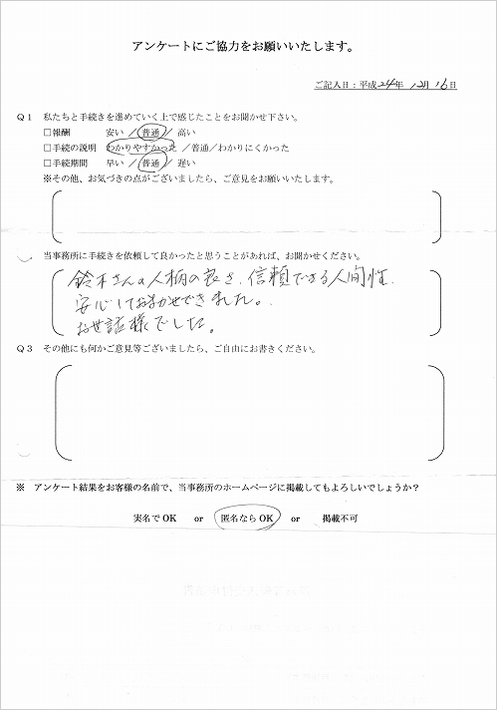 アンケートにご協力をお願いいたします。
ご記入日：平成24年 12月 16日
Q1 私たちと手続きを進めていく上で感じたことをお聞かせ下さい。
□報酬 安い／普通／高い
□手続の説明 わかりやすかった／普通／わかりにくかった
□手続期間 早い／普通／遅い
※その他、お気づきの点がございましたら、ご意見をお願いいたします。
当事務所に手続きを依頼して良かったと思うことがあれば、お聞かせください。
鈴木さんの人柄の良さ、信頼できる人間性、
安心しておまかせできました。
お世話様でした。
Q3 その他にも何かご意見等ございましたら、ご自由にお書きください。
※ アンケート結果をお客様の名前で、当事務所のホームページに掲載してもよろしいでしょうか？
実名でOK or 匿名ならOK or 掲載不可